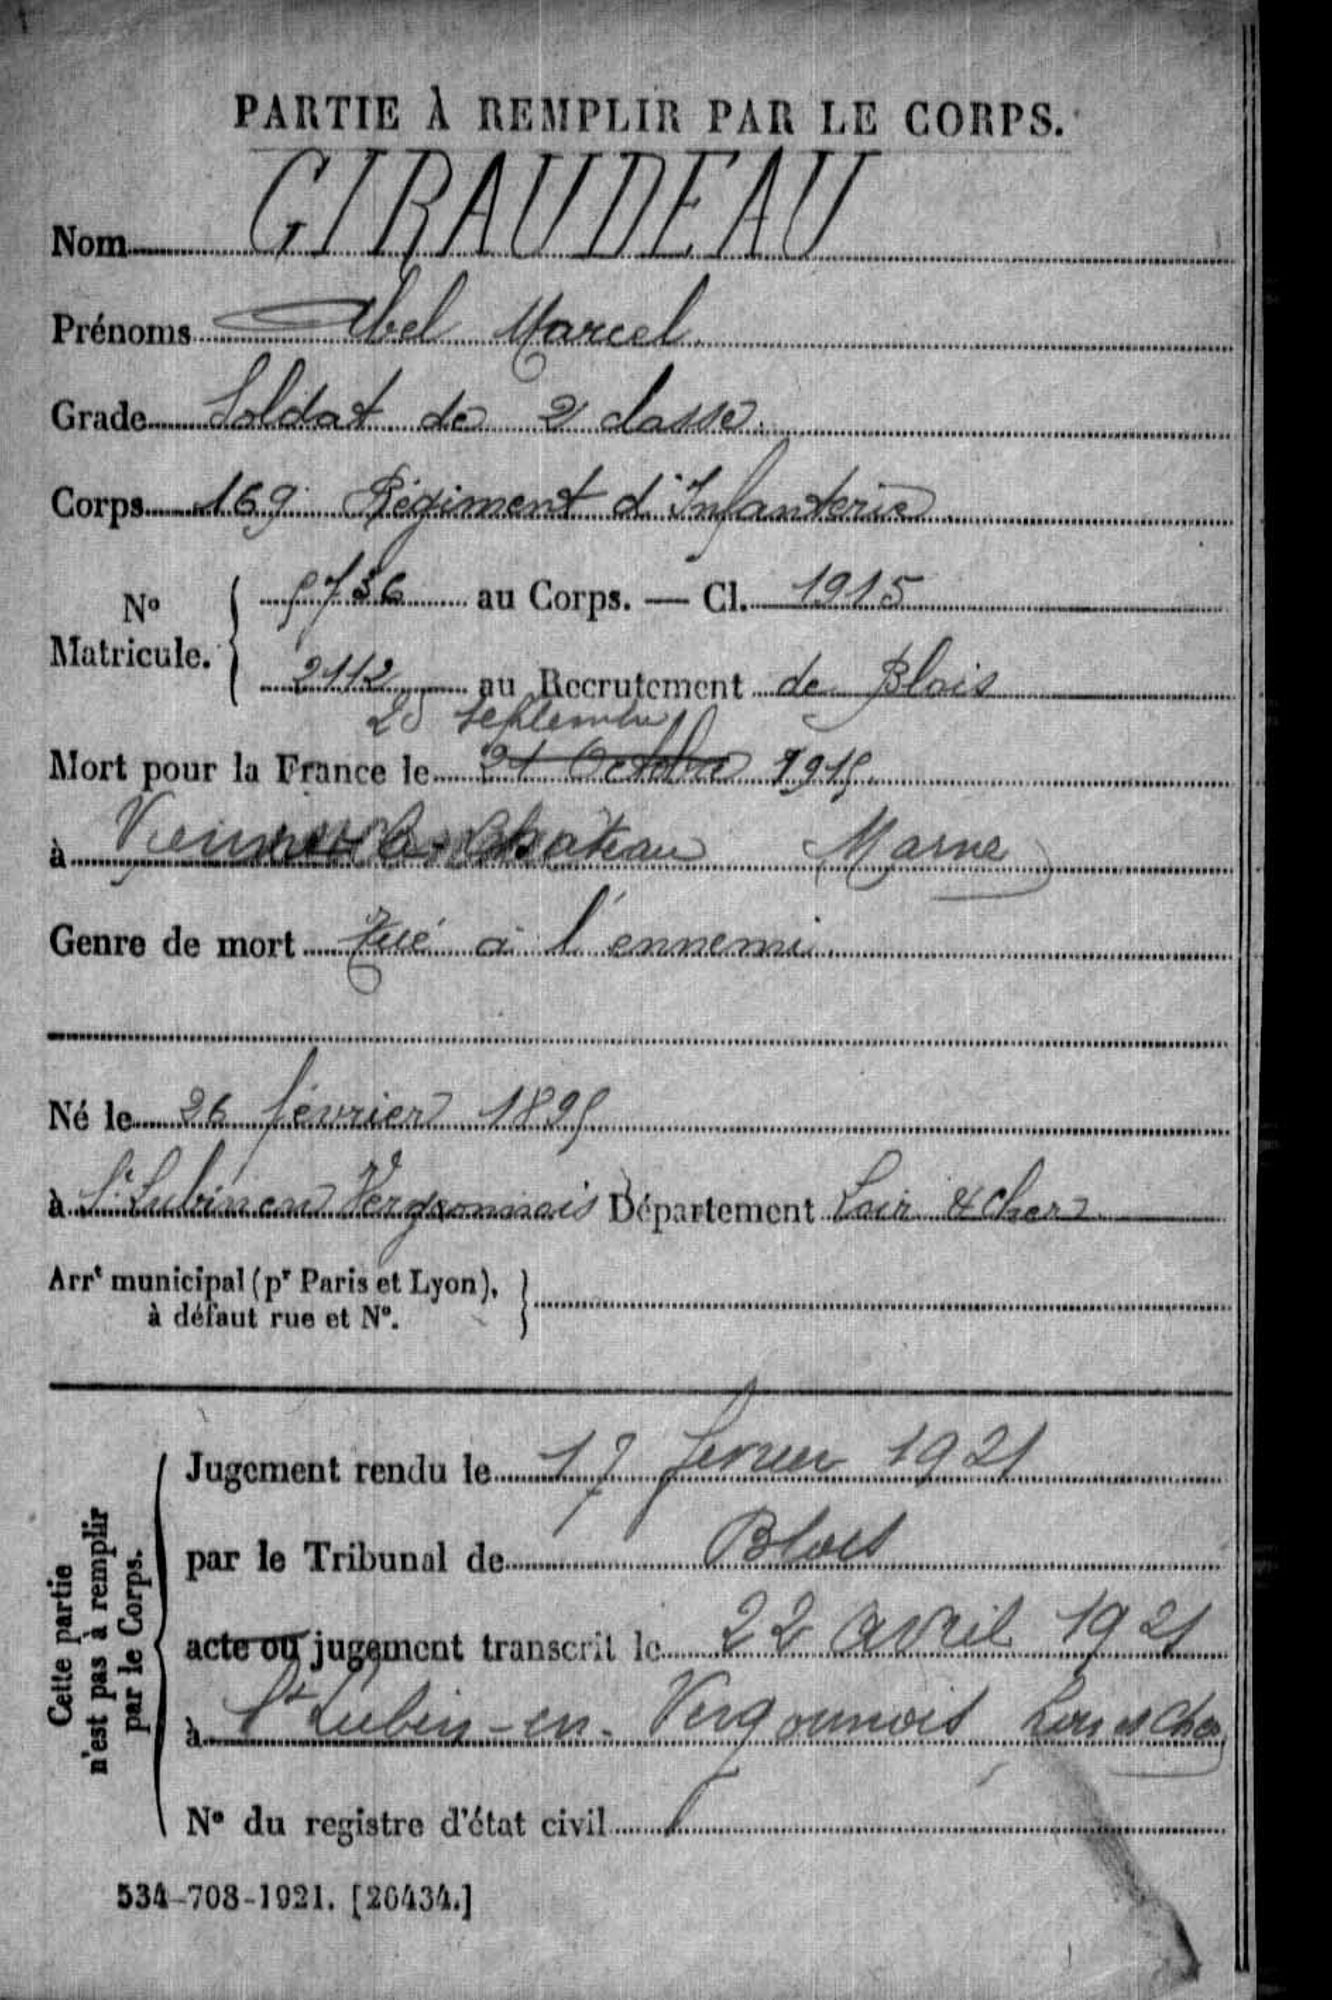 PARTIE À REMPLIR PAR LE CORPS.
Nom GIRAUDEAU
Prénoms Abel Marcel
Grade Soldat de 2 classe.
Corps 169 Régiment d'Infanterie
N° Matricule. 5736 au Corps. — Cl. 1915
2112 au Recrutement de Blois
25 septembre
Mort pour la France le 21 Octobre 1915
à Vienne le Château Marne
Genre de mort Tué à l'ennemi
Né le 26 février 1895
à St Lubin en Vergonnois Département Loir & Cher
Arrt municipal (pr Paris et Lyon),
à défaut rue et N°.
Cette partie
n'est pas à remplir
par le Corps.
Jugement rendu le 17 fevrier 1921
par le Tribunal de Blois
acte ou jugement transcrit le 22 avril 1921
à St Lubin-en-Vergonnois Loir et Cher
N° du registre d'état civil
534-708-1921. [26434.]